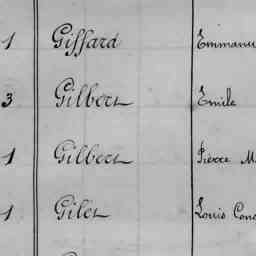 1 Giffard Emmanu
3 Gilbert Emile
1 Gilbert Pierre M
1 Gilet Louis Cons